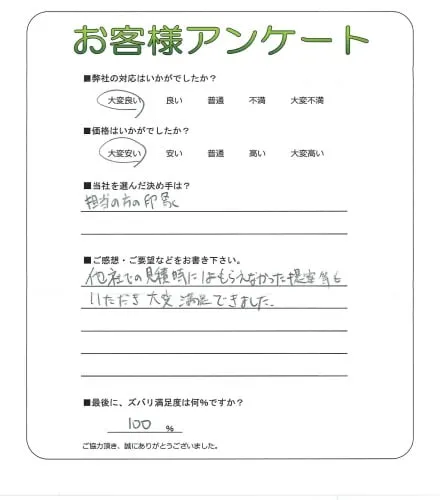 お客様アンケート
■弊社の対応はいかがでしたか?
大変良い 良い 普通 不満 大変不満
■価格はいかがでしたか?
大変安い 安い 普通 高い 大変高い
■当社を選んだ決め手は?
担当の方の印象
■ご感想・ご要望などをお書き下さい。
他社での見積時にはもらえなかった提案等も
いただき大変満足できました。
■最後に、ズバリ満足度は何%ですか?
100 %
ご協力頂き、誠にありがとうございました。